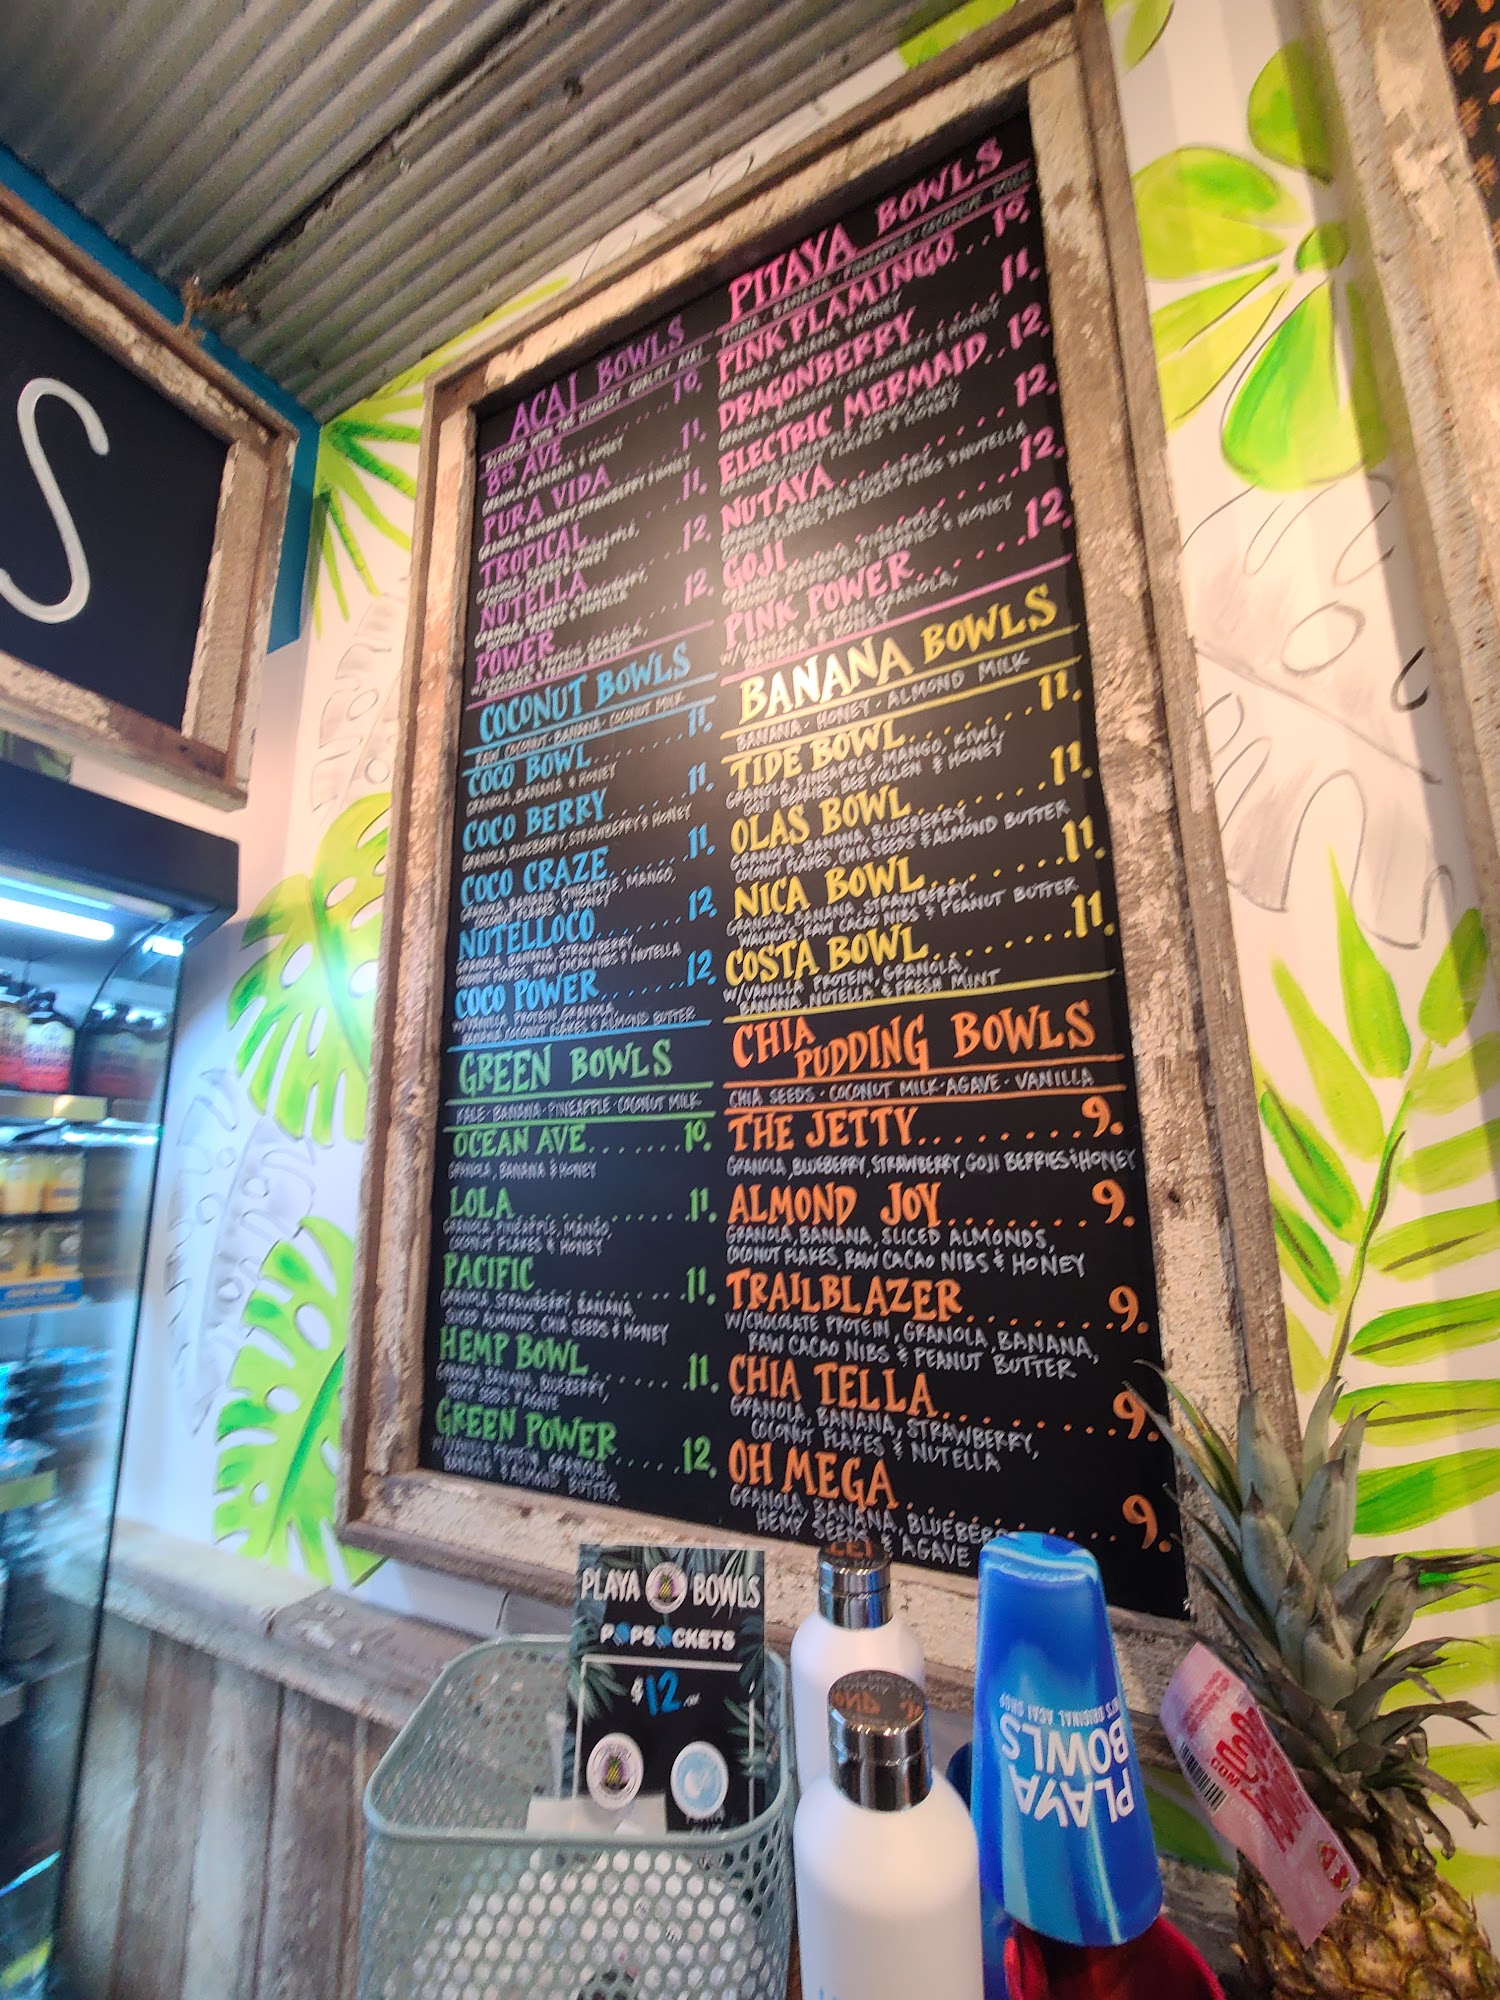 ACAI BOWLS
BLENDED WITH THE HIGHEST QUALITY ACAI
8TH AVE..........10.
GRANOLA, BANANA & HONEY
PURA VIDA......11.
GRANOLA, BLUEBERRY, STRAWBERRY & HONEY
TROPICAL........11.
NUTELLA........12.
POWER........12.
COCONUT BOWLS
RAW COCONUT · BANANA · COCONUT MILK
COCO BOWL........11.
GRANOLA, BANANA & HONEY
COCO BERRY......11.
GRANOLA, BLUEBERRY, STRAWBERRY & HONEY
COCO CRAZE......11.
GRANOLA, BANANA, PINEAPPLE, MANGO,
COCONUT FLAKES & HONEY
NUTELLOCO......12.
GRANOLA, BANANA, STRAWBERRY,
COCONUT FLAKES, RAW CACAO NIBS & NUTELLA
COCO POWER......12.
W/VANILLA PROTEIN, GRANOLA,
BANANA, COCONUT FLAKES & ALMOND BUTTER
GREEN BOWLS
KALE · BANANA · PINEAPPLE · COCONUT MILK
OCEAN AVE.......10.
GRANOLA, BANANA & HONEY
LOLA............11.
GRANOLA, PINEAPPLE, MANGO,
COCONUT FLAKES & HONEY
PACIFIC..........11.
GRANOLA, STRAWBERRY, BANANA,
SLICED ALMONDS, CHIA SEEDS & HONEY
HEMP BOWL......11.
GRANOLA, BANANA, BLUEBERRY,
HEMP SEEDS & AGAVE
GREEN POWER.....12.
W/VANILLA PROTEIN, GRANOLA,
BANANA & ALMOND BUTTER
PITAYA BOWLS
PITAYA · BANANA · PINEAPPLE · COCONUT MILK
PINK FLAMINGO...10.
GRANOLA, BANANA & HONEY
DRAGONBERRY......11.
GRANOLA, BLUEBERRY, STRAWBERRY & HONEY
ELECTRIC MERMAID..12.
NUTAYA..........12.
GRANOLA, BANANA, BLUEBERRY,
COCONUT FLAKES, RAW CACAO NIBS & NUTELLA
GOJI..........12.
PINK POWER......12.
W/VANILLA PROTEIN, GRANOLA,
BANANA & HONEY
BANANA BOWLS
BANANA · HONEY · ALMOND MILK
TIDE BOWL.......11.
GRANOLA, PINEAPPLE, MANGO, KIWI,
GOJI BERRIES, BEE POLLEN & HONEY
OLAS BOWL.......11.
GRANOLA, BANANA, BLUEBERRY,
COCONUT FLAKES, CHIA SEEDS & ALMOND BUTTER
NICA BOWL.......11.
GRANOLA, BANANA, STRAWBERRY,
WALNUTS, RAW CACAO NIBS & PEANUT BUTTER
COSTA BOWL.......11.
W/VANILLA PROTEIN, GRANOLA,
BANANA, NUTELLA & FRESH MINT
CHIA PUDDING BOWLS
CHIA SEEDS · COCONUT MILK · AGAVE · VANILLA
THE JETTY........9.
GRANOLA, BLUEBERRY, STRAWBERRY, GOJI BERRIES & HONEY
ALMOND JOY.......9.
GRANOLA, BANANA, SLICED ALMONDS,
COCONUT FLAKES, RAW CACAO NIBS & HONEY
TRAILBLAZER.......9.
W/CHOCOLATE PROTEIN, GRANOLA, BANANA,
RAW CACAO NIBS & PEANUT BUTTER
CHIA TELLA........9.
GRANOLA, BANANA, STRAWBERRY,
COCONUT FLAKES & NUTELLA
OH MEGA..........9.
GRANOLA, BANANA,
HEMP SEEDS & AGAVE
S
PLAYA BOWLS
POPSOCKETS
$12
PLAYA
BOWLS
ORIGINAL ACAI SHOP